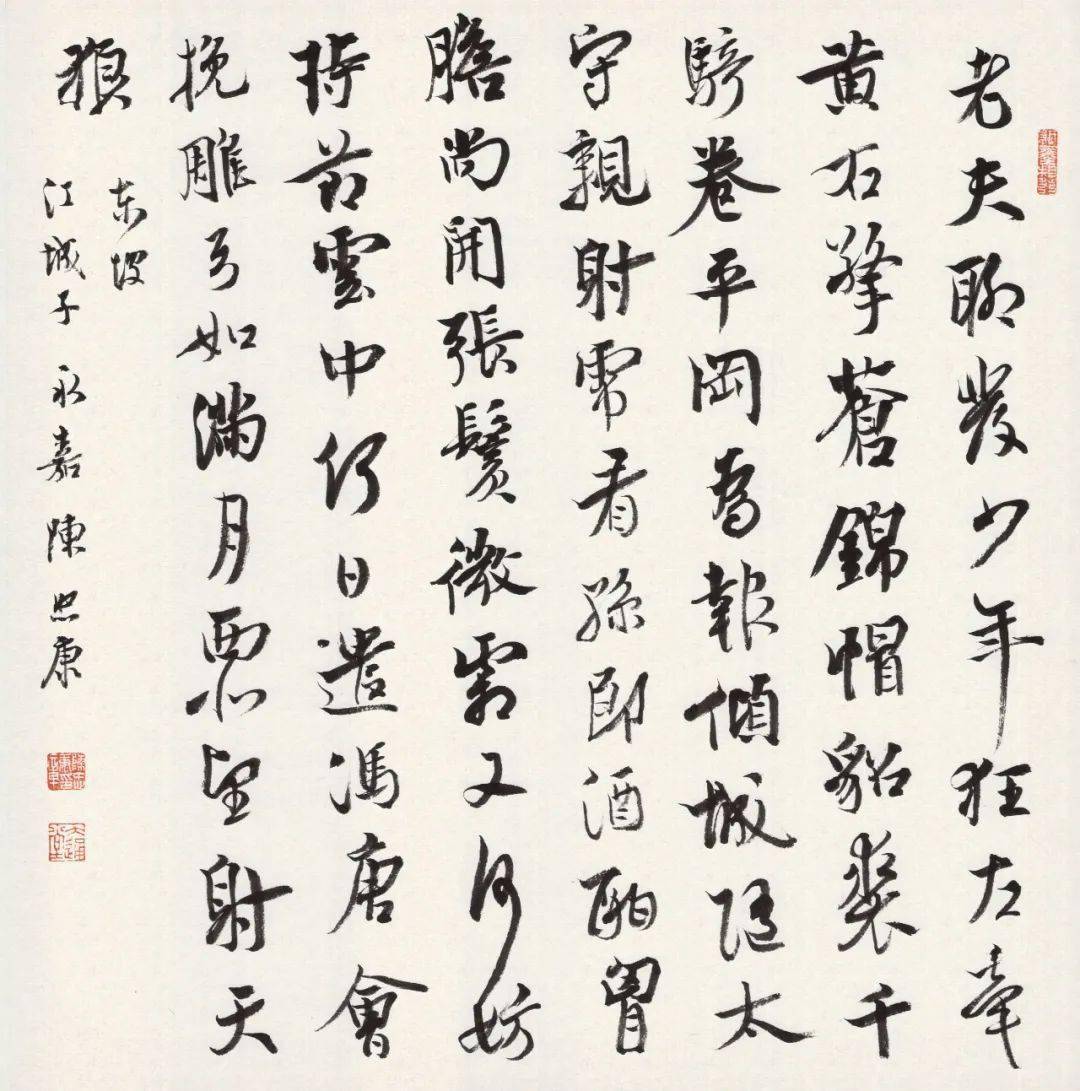 老夫聊發少年狂左牽
黃右擎蒼錦帽貂裘千
騎卷平岡為報傾城隨太
守親射虎看孫郎酒酣胷
膽尚開張鬢微霜又何妨
持節雲中何日遣馮唐會
挽雕弓如滿月西北望射天
狼
东坡
江城子 永嘉陳忠康